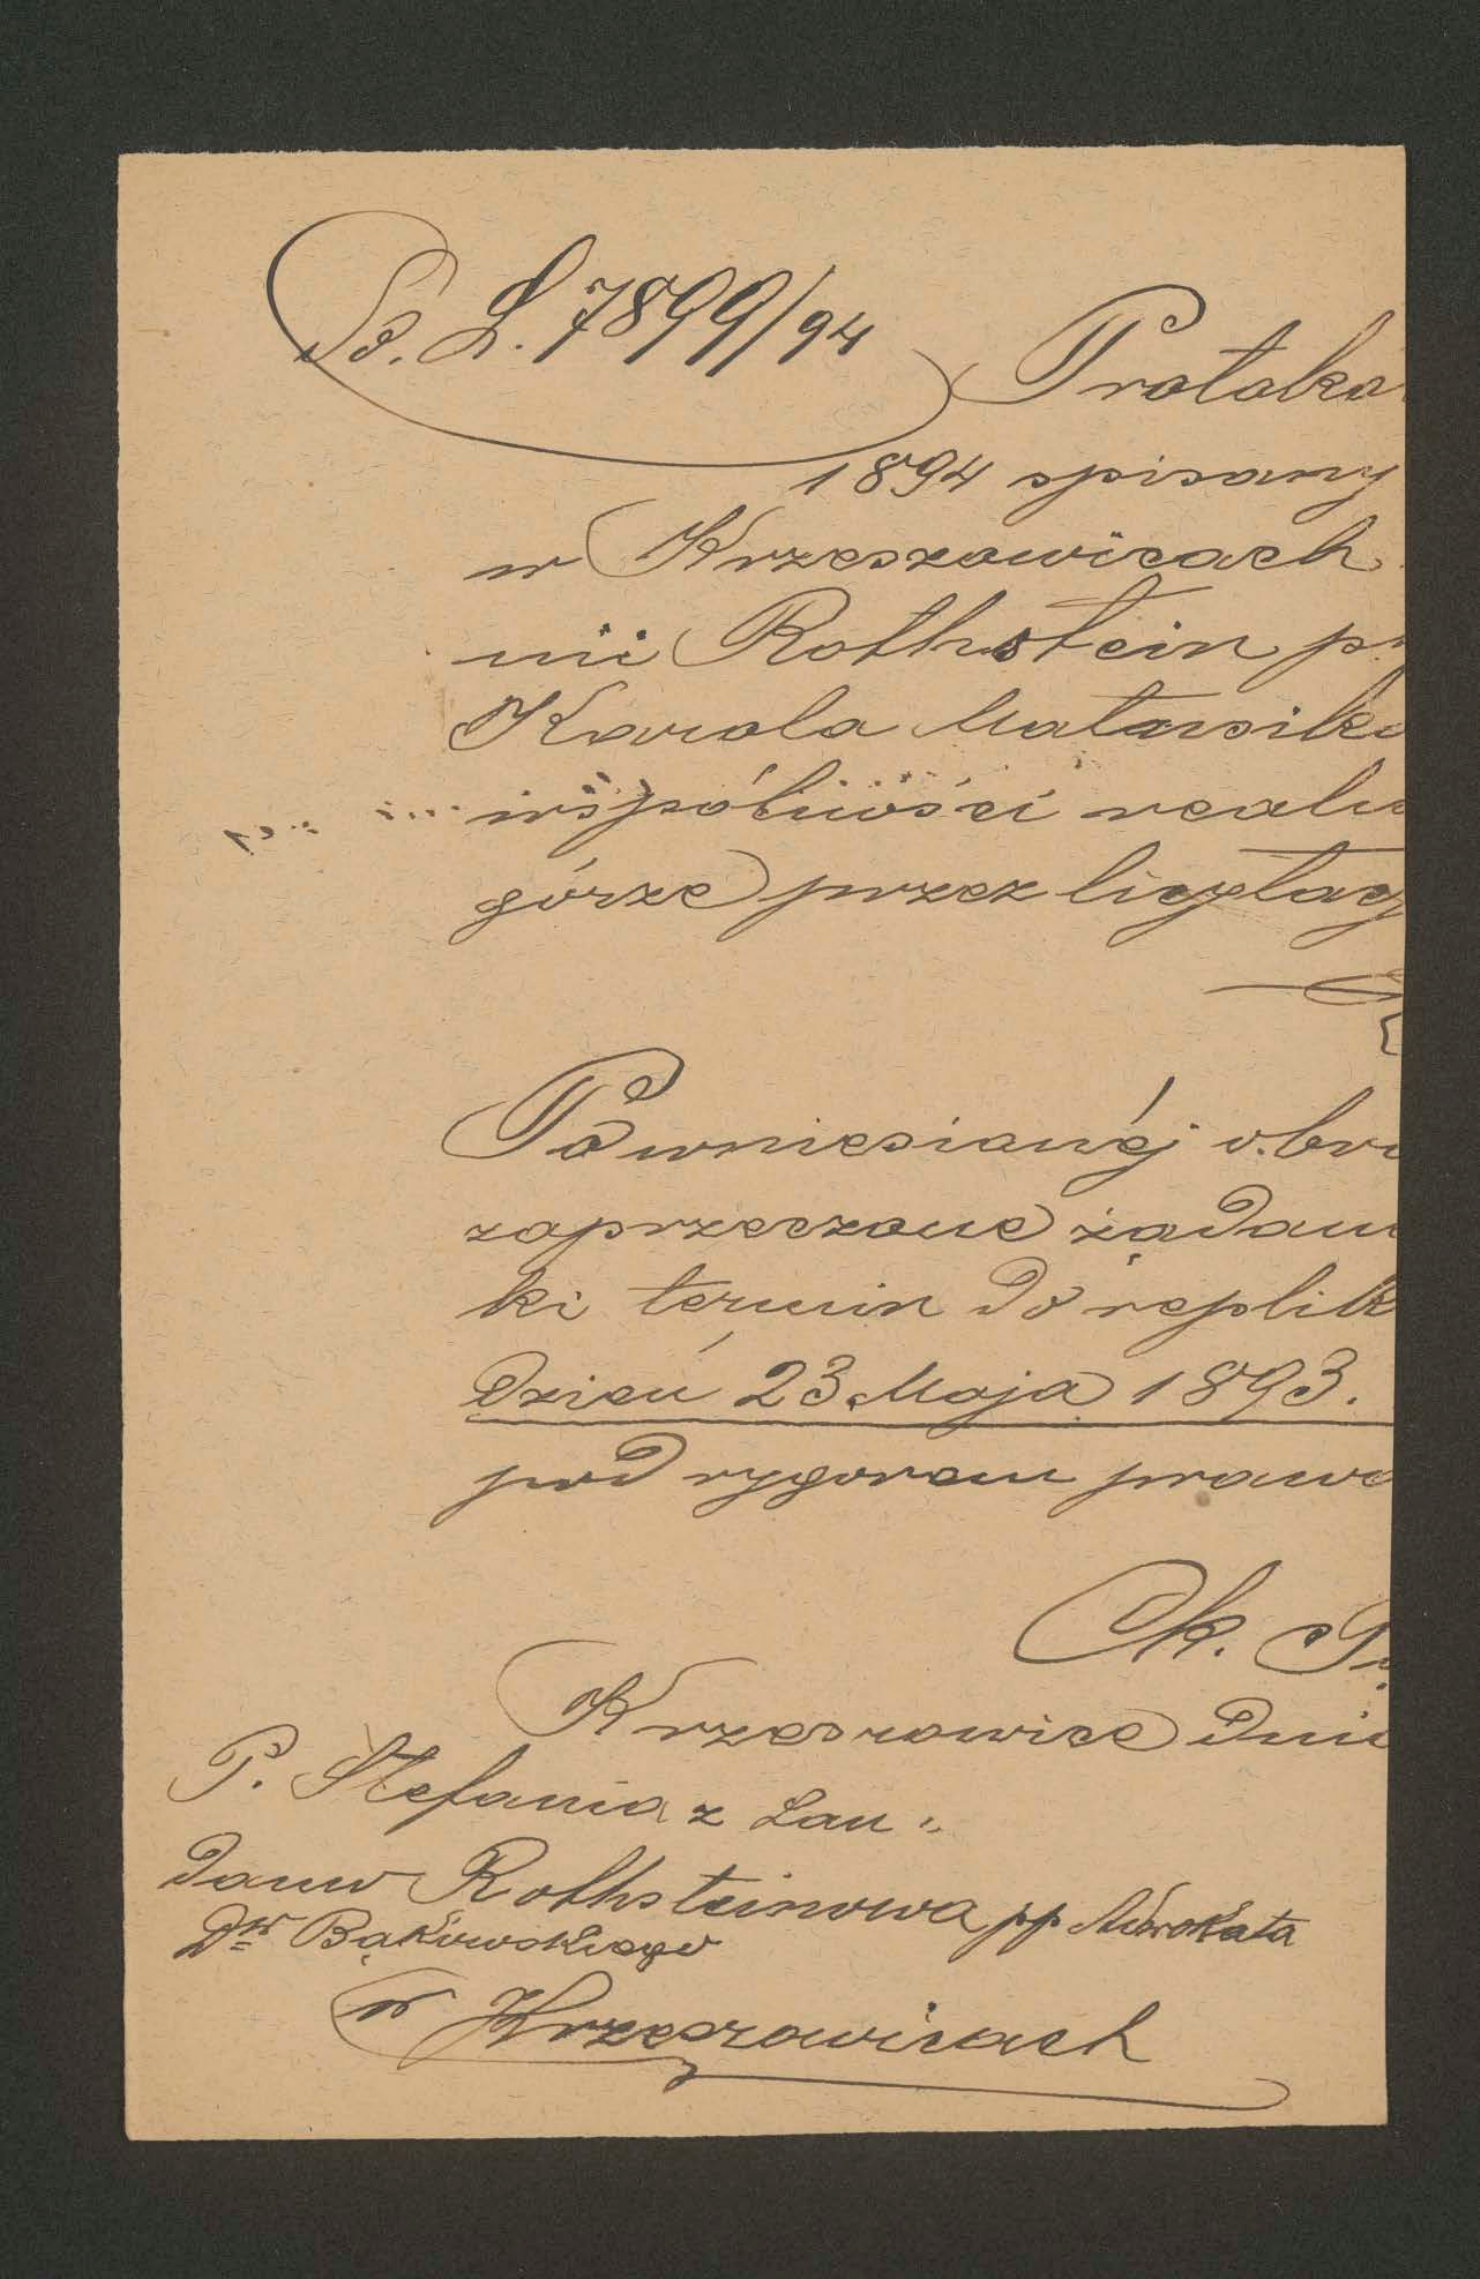 So. L. 7899/94
Protoko
1894 spisany
w Krzeszowicach
nii Rothstein p
Karola Matusik
współności realn
górze przez licytacy
Po wniesionéj obro
zaprzeczone żądan
ki termin do replik
dzień 23. Maja 1893.
pod rygorem prawe
Ck. S
Krzeszowice dnia
P. Stefania z Lan„
dauw Rothsteinowa pp Adwokata
Dra Bąkowskiego
w Krzeszowicach